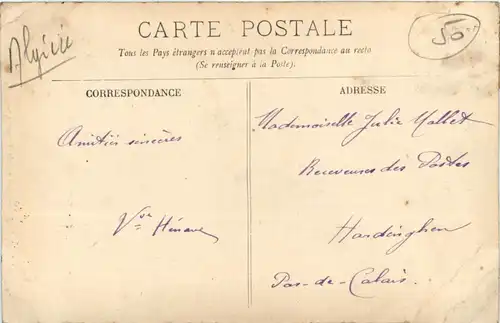 Algérie
50
CARTE POSTALE
Tous les Pays étrangers n'acceptent pas la Correspondance au recto
(Se renseigner à la Poste).
CORRESPONDANCE
Amitiés sincères
Vve Hénave
ADRESSE
Mademoiselle Julie Mallet
Receveuse des Postes
Hardinghen
Pas-de-Calais.